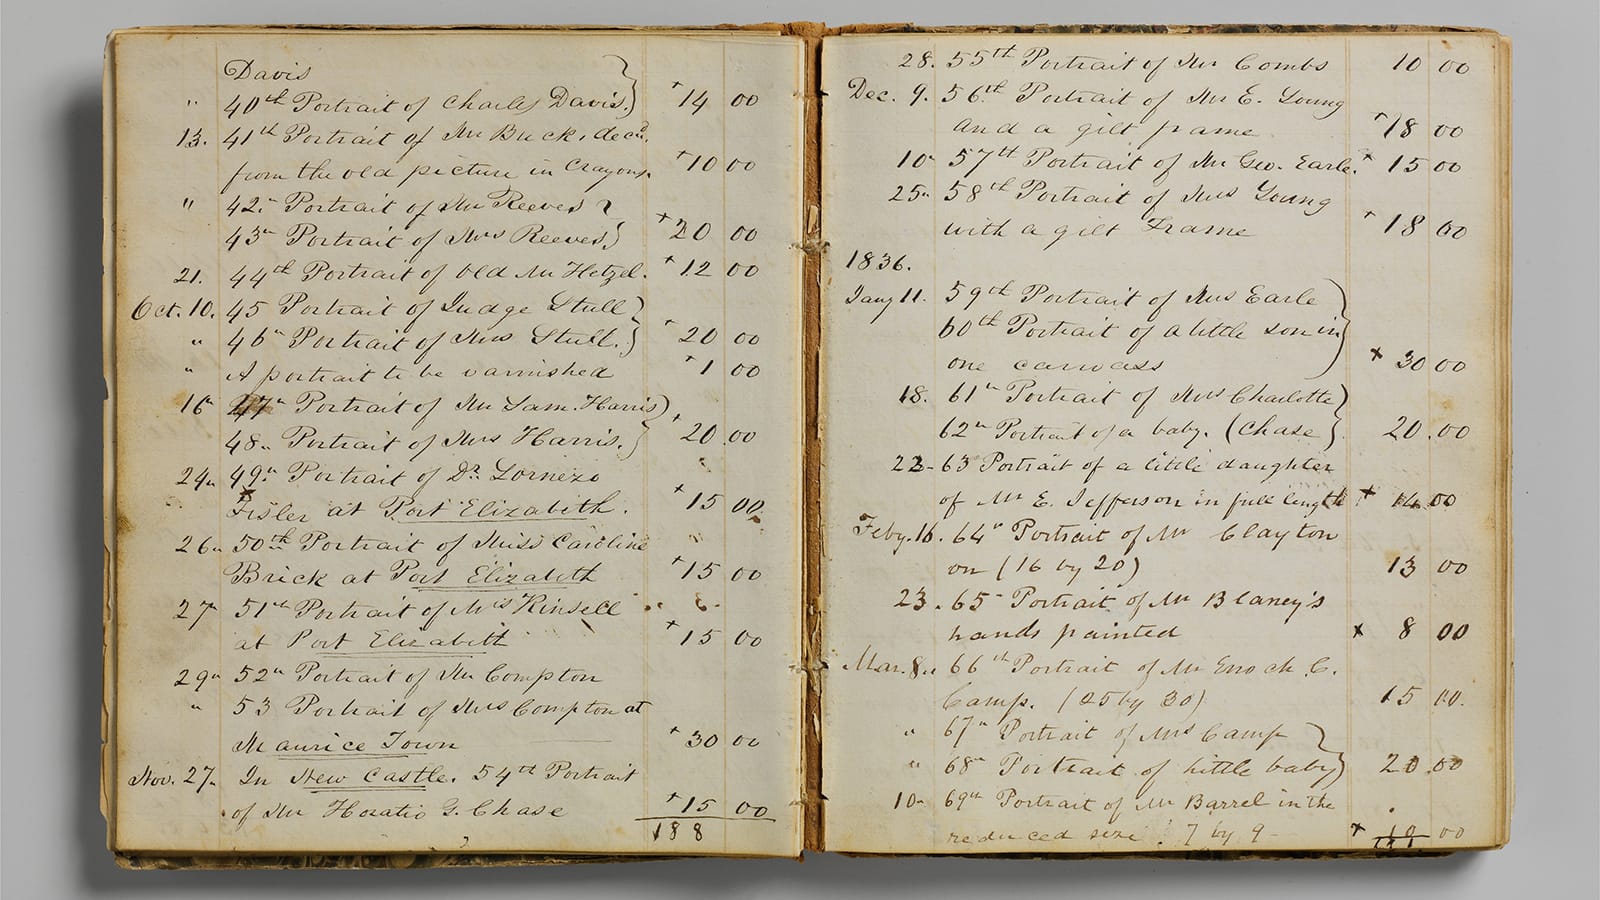 Davis
" 40th Portrait of Charles Davis. +14 00
13. 41st Portrait of Mr Buck, decd.
from the old picture in Crayons. +10 00
" 42" Portrait of Mr Reeves
43" Portrait of Mrs Reeves +20 00
21. 44th Portrait of Old Mr Hetzel. +12 00
Oct. 10. 45 Portrait of Judge Stull
" 46" Portrait of Mrs Stull. +20 00
" A portrait to be varnished +1 00
16" 47" Portrait of Mr Sam. Harris
48" Portrait of Mrs Harris. +20.00
24" 49" Portrait of Dr. Lornezo
Fisler at Port Elizabeth. +15 00
26" 50th Portrait of Miss Caroline
Brick at Port Elizabeth +15 00
27" 51st Portrait of Mrs Kinsell
at Port Elizabeth +15 00
29" 52" Portrait of Mr Compton
" 53 Portrait of Mrs Compton at
Maurice Town +30 00
Nov. 27. In New Castle. 54th Portrait
of Mr Horatio G. Chase +15 00
188
28. 55th Portrait of Mr Combs 10 00
Dec. 9. 56th Portrait of Mr E. Young
and a gilt frame +18 00
10" 57th Portrait of Mr Geo. Earle. + 15 00
25" 58th Portrait of Mrs Young
with a gilt Frame +18 00
1836.
Jany 11. 59th Portrait of Mrs Earle
60th Portrait of a little son in
one canvass x 30 00
18. 61" Portrait of Mrs Charlotte
62" Portrait of a baby. (Chase 20.00
22- 63 Portrait of a little daughter
of Mr E. Jefferson in full length + 14.00
Feby. 16. 64" Portrait of Mr Clayton
on (16 by 20) 13 00
23. 65" Portrait of Mr Blaney's
hands painted x 8 00
Mar. 8" 66th Portrait of Mr Enoch C.
Camp. (25 by 30) 15 00.
" 67" Portrait of Mrs Camp
" 68" Portrait of little baby 20.00
10" 69th Portrait of Mr Barrel in the
reduced size. 7 by 9 - x 10 00